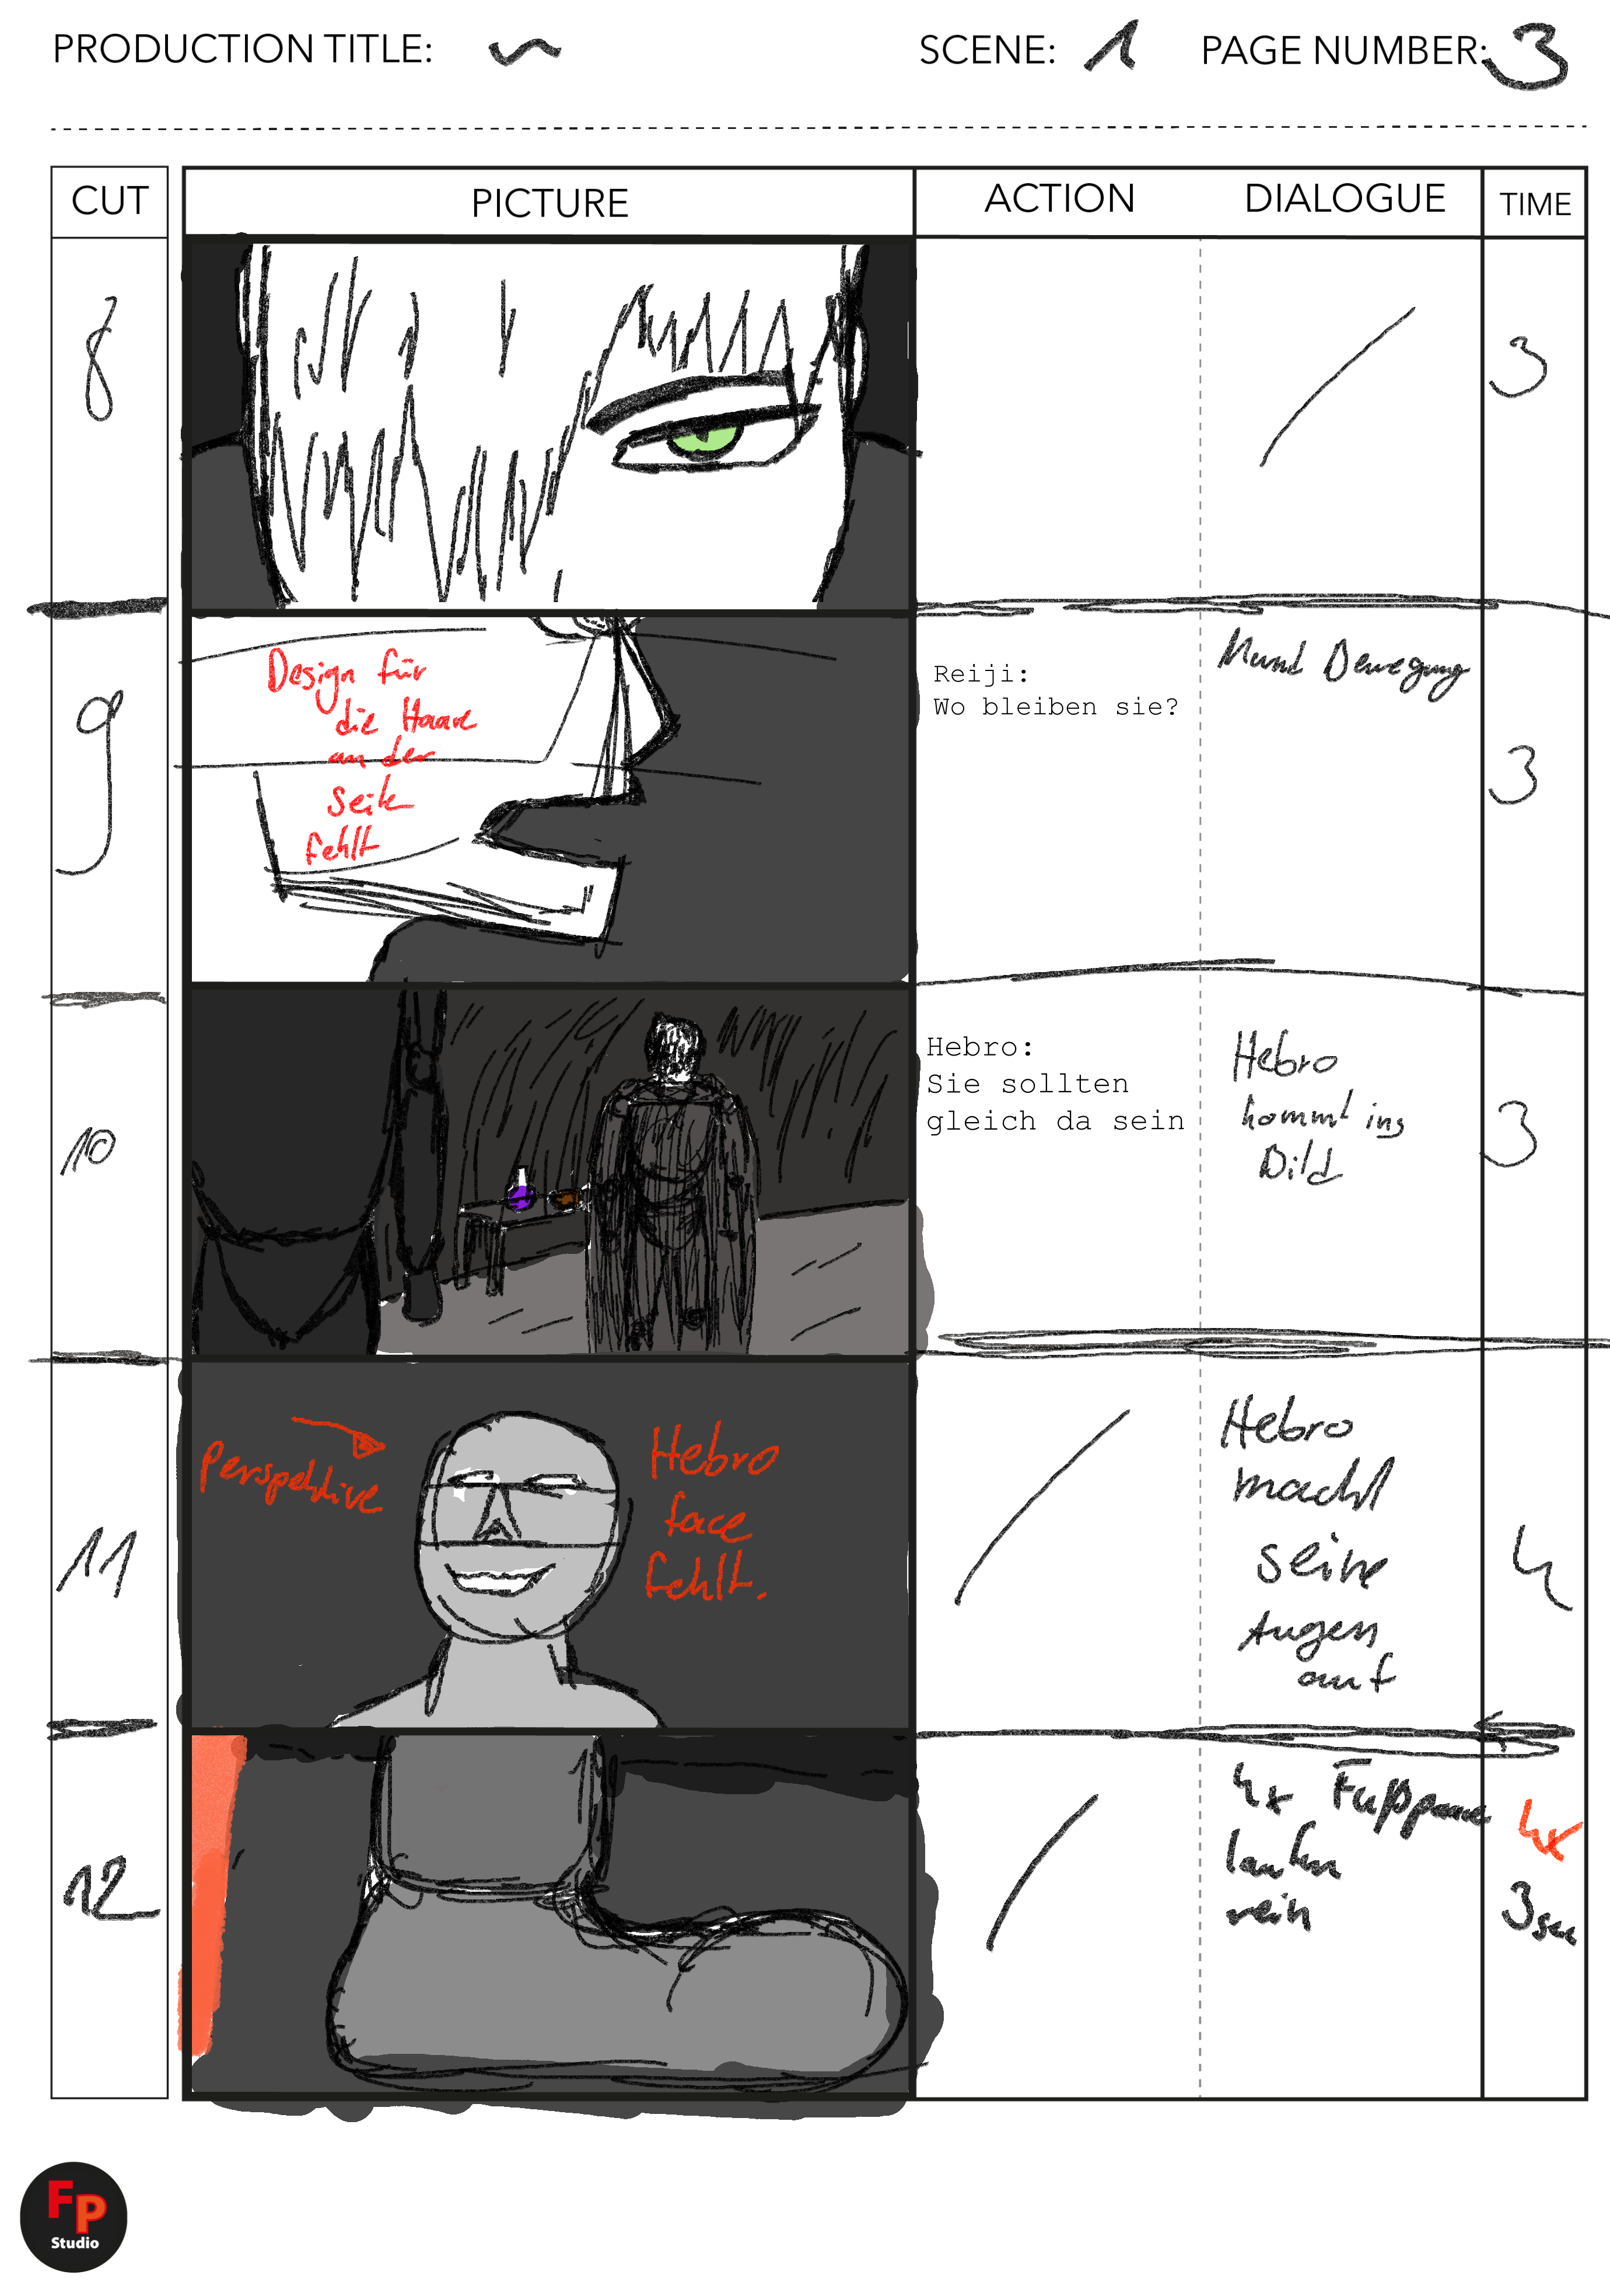 PRODUCTION TITLE:
SCENE: 1
PAGE NUMBER: 3
CUT
PICTURE
ACTION
DIALOGUE
TIME
8
3
9
Design für
die Haare
an der
Seite
fehlt
Reiji:
Wo bleiben sie?
Mund Bewegung
3
10
Hebro:
Sie sollten
gleich da sein
Hebro
kommt ins
Bild
3
11
Perspektive
Hebro
face
fehlt.
Hebro
macht
seine
Augen
auf
4
12
4x Fußpaare
laufen
rein
4x
3sec
FP
Studio